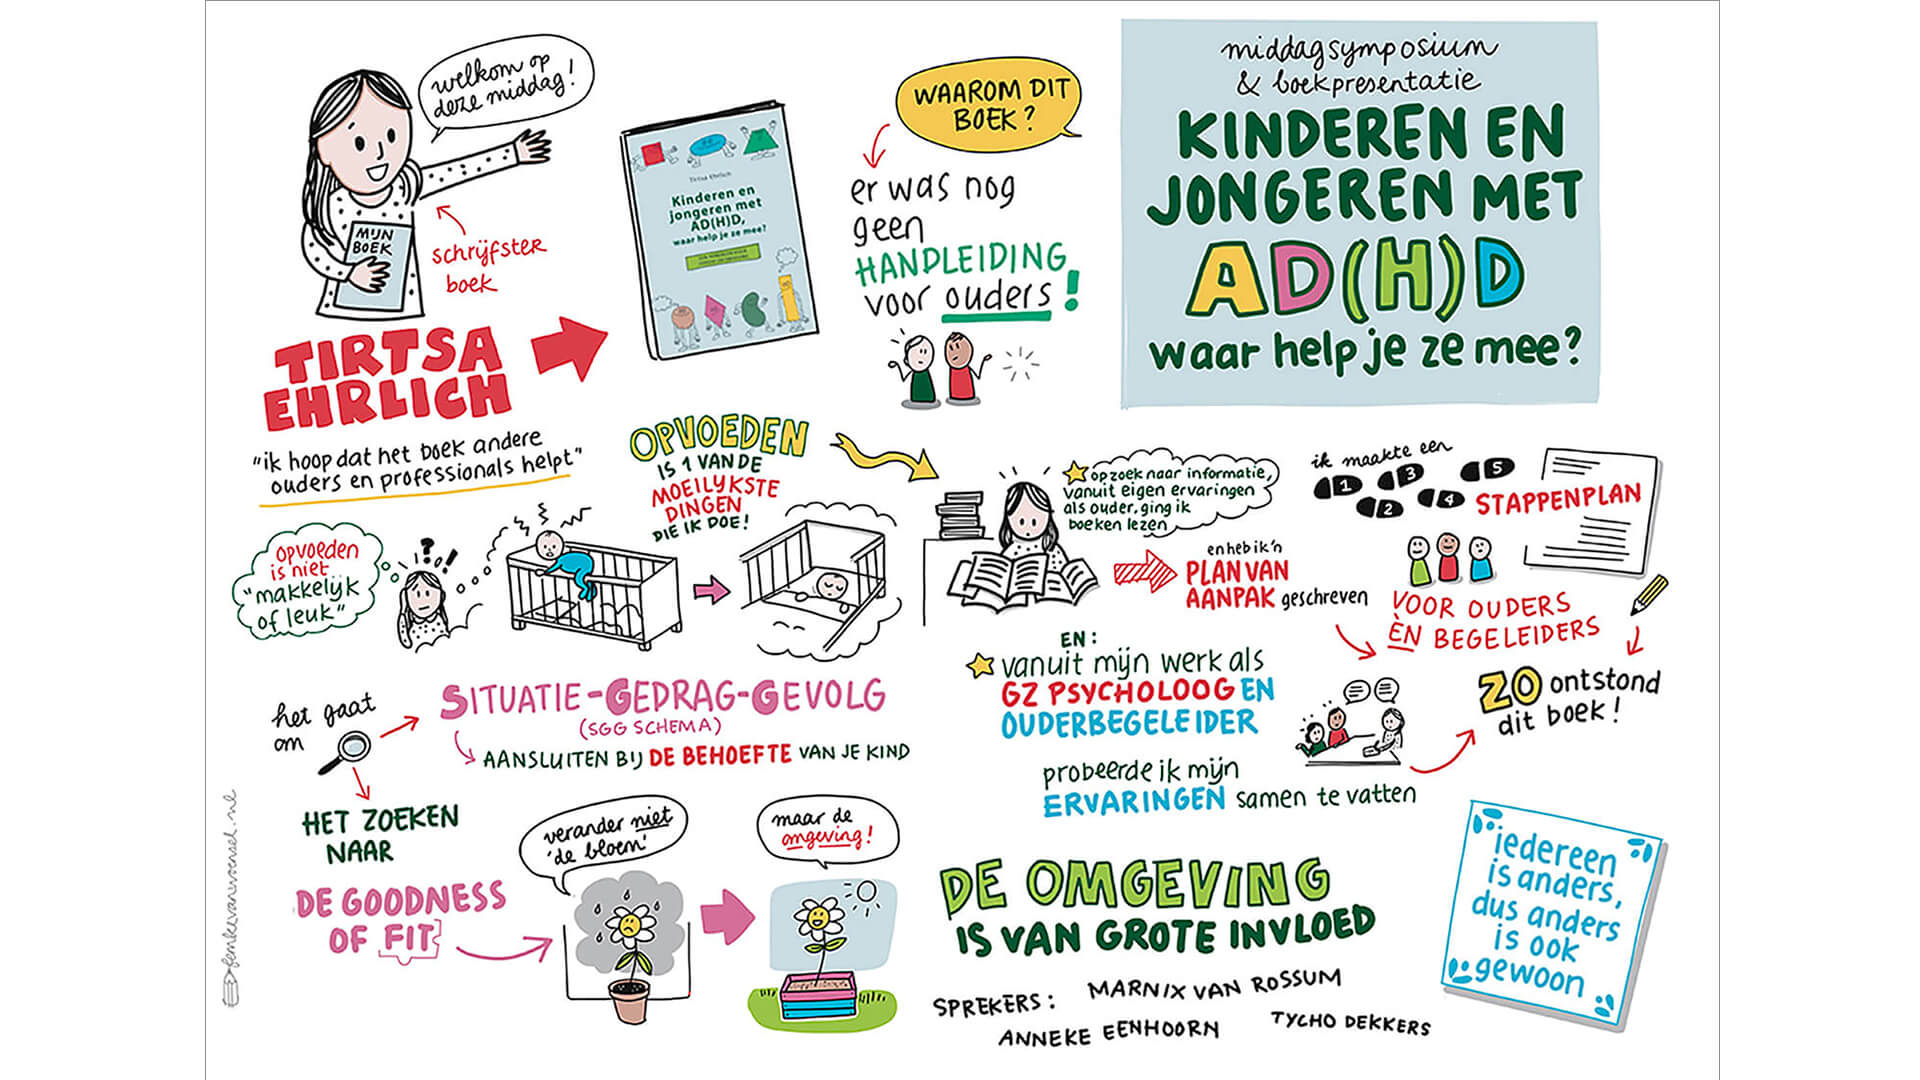 welkom op
deze middag!
MIJN
BOEK
schrijfster
boek
TIRTSA
EHRLICH
"ik hoop dat het boek andere
ouders en professionals helpt"
Tirtsa Ehrlich
Kinderen en
jongeren met
AD(H)D,
waar help je ze mee?
WAAROM DIT
BOEK?
er was nog
geen
HANDLEIDING
voor ouders!
middagsymposium
& boekpresentatie
KINDEREN EN
JONGEREN MET
AD(H)D
waar help je ze mee?
OPVOEDEN
IS 1 VAN DE
MOEILYKSTE
DINGEN
DIE IK DOE!
opvoeden
is niet
"makkelyk
of leuk"
?!
op zoek naar informatie,
vanuit eigen ervaringen
als ouder, ging ik
boeken lezen
en heb ik 'n
PLAN VAN
AANPAK geschreven
ik maakte een
1 2 3 4 5
STAPPENPLAN
VOOR OUDERS
ÈN BEGELEIDERS
EN:
vanuit mijn werk als
GZ PSYCHOLOOG EN
OUDERBEGELEIDER
probeerde ik mijn
ERVARINGEN samen te vatten
ZO ontstond
dit boek!
het gaat
om
SITUATIE-GEDRAG-GEVOLG
(SGG SCHEMA)
AANSLUITEN BIJ DE BEHOEFTE VAN JE KIND
HET ZOEKEN
NAAR
DE GOODNESS
OF FIT
verander niet
'de bloem'
maar de
omgeving!
DE OMGEVING
IS VAN GROTE INVLOED
SPREKERS:
MARNIX VAN ROSSUM
ANNEKE EENHOORN
TYCHO DEKKERS
iedereen
is anders,
dus anders
is ook
gewoon
femkevanwoensel.nl